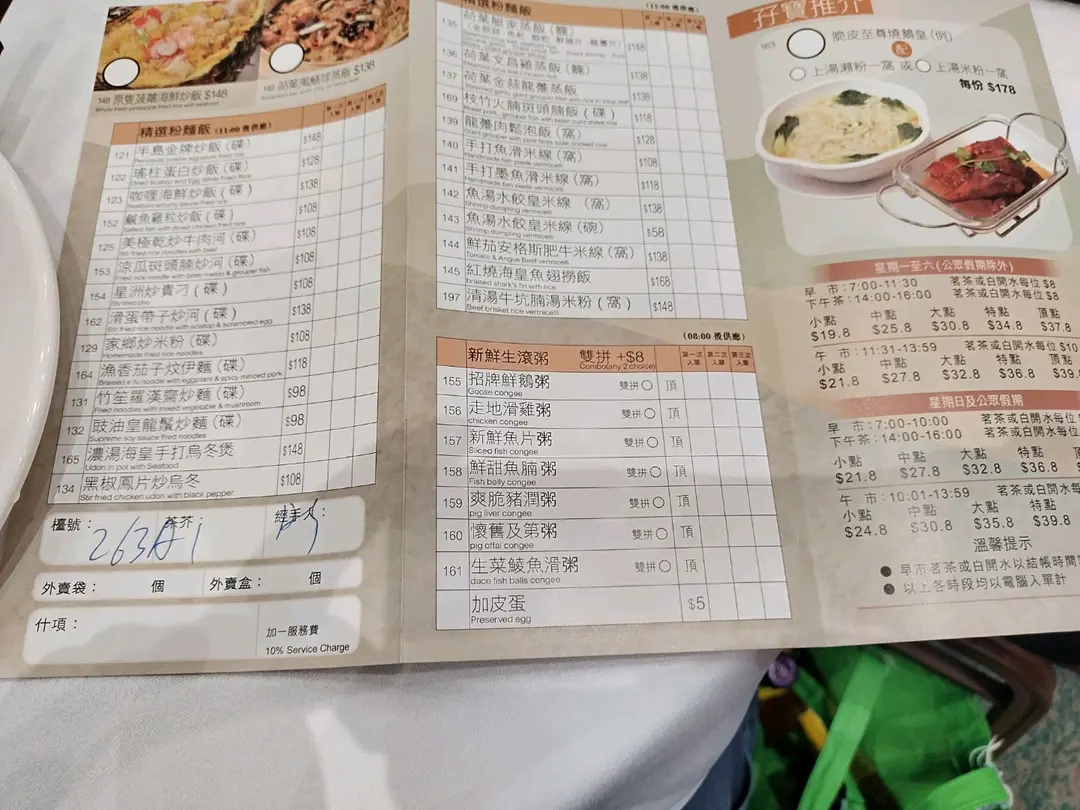 148 原隻菠蘿海鮮炒飯 $148
Whole fresh pineapple fried rice with seafood
$138
精選粉麵飯 (11:00 後供應)
第一次入單 第二次入單 第三次入單
121 半島金牌炒飯 (碟) $148
122 瑤柱蛋白炒飯 (碟) $128
Dried scallop and Egg White Fried Rice
123 咖喱海鮮炒飯 (碟) $138
Seafood w/curry sauce fried rice
152 鹹魚雞粒炒飯 (碟) $108
Salted fish with diced chicken fried rice
125 美極乾炒牛肉河 (碟) $108
Stir fried rice noodles with beef
153 涼瓜斑頭腩炒河 (碟) $108
Fried rice noodle with bitter melon & grouper fish
154 星洲炒貴刁 (碟) $108
162 滑蛋帶子炒河 (碟) $138
Stir fried rice noodle with scallop & scrambled egg
129 家鄉炒米粉 (碟) $108
Homemade fried rice noodles
164 漁香茄子炆伊麵 (碟) $118
Braised e fu noodle with eggplant & spicy minced pork
131 竹笙羅漢齋炒麵 (碟) $98
Fried noodles with mixed vegetable & mushroom
132 豉油皇龍鬚炒麵 (碟) $98
Supreme soy sauce fried noodles
165 濃湯海皇手打烏冬煲 $148
Udon in pot with Seafood
134 黑椒鳳片炒烏冬 $108
Stir fried chicken udon with black pepper
檯號: 263 茶芥 經手人:
外賣袋: 個 外賣盒: 個
什項:
加一服務費
10% Service Charge
精選粉麵飯 (11:00 後供應)
135 荷葉龍家蒸飯 (籠) $148
136 荷葉文昌雞蒸飯 (籠) $138
137 荷葉金絲龍躉蒸飯 $138
169 枝竹火腩斑頭腩飯 (碟) $118
139 龍躉肉鬆泡飯 (窩) $128
140 手打魚滑米線 (窩) $108
Handmade fish paste vermicelli
141 手打墨魚滑米線 (窩) $118
142 魚湯水餃皇米線 (窩) $138
Shrimp dumpling vermicelli
143 魚湯水餃皇米線 (碗) $58
Shrimp dumpling vermicelli
144 鮮茄安格斯肥牛米線 (窩) $138
Tomato & Angus Beef vermicelli
145 紅燒海皇魚翅撈飯 $168
braised shark's fin with rice
197 清湯牛坑腩湯米粉 (窩) $148
Beef brisket rice vermicelli
(08:00 後供應)
新鮮生滾粥 雙拼 +$8
Combo(any 2 choice)
第一次入單 第二次入單 第三次入單
155 招牌鮮鵝粥 雙拼 頂
Goose congee
156 走地滑雞粥 雙拼 頂
chicken congee
157 新鮮魚片粥 雙拼 頂
Sliced fish congee
158 鮮甜魚腩粥 雙拼 頂
Fish belly congee
159 爽脆豬潤粥 雙拼 頂
pig liver congee
160 懷舊及第粥 雙拼 頂
pig offal congee
161 生菜鯪魚滑粥 雙拼 頂
dace fish balls congee
加皮蛋 $5
Preserved egg
孖寶推介
163 脆皮至尊燒鵝皇(例)
配
上湯瀨粉一窩 或 上湯米粉一窩
每份 $178
星期一至六(公眾假期除外)
早 市:7:00-11:30 茗茶或白開水每位 $8
下午茶:14:00-16:00 茗茶或白開水每位 $8
小點 中點 大點 特點 頂點
$19.8 $25.8 $30.8 $34.8 $37.8
午 市:11:31-13:59 茗茶或白開水每位 $10
小點 中點 大點 特點 頂點
$21.8 $27.8 $32.8 $36.8 $39.
星期日及公眾假期
早 市:7:00-10:00 茗茶或白開水每位
下午茶:14:00-16:00 茗茶或白開水每位
小點 中點 大點 特點 頂
$21.8 $27.8 $32.8 $36.8 $
午 市:10:01-13:59 茗茶或白開水每
小點 中點 大點 特點
$24.8 $30.8 $35.8 $39.8
溫馨提示
● 早市茗茶或白開水以結帳時間
● 以上各時段均以電腦入單計